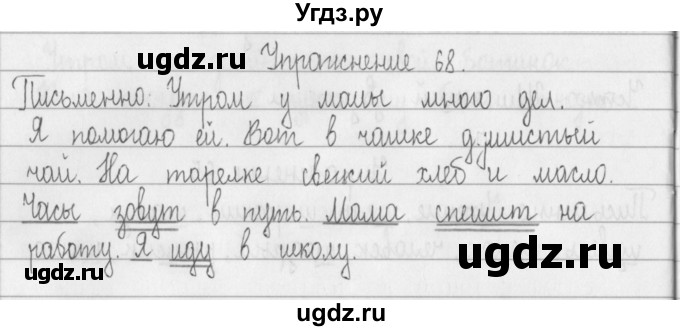 Угдз.ру
Упражнение 68.
ugdz.ru ugdz.ru
Письменно: Утром у мамы много дел.
Я помогаю ей. Вот в чашке душистый
чай. На тарелке свежий хлеб и масло.
Часы зовут в путь. Мама спешит на
работу. Я иду в школу.
ugdz.ru
ugdz.ru ugdz.ru